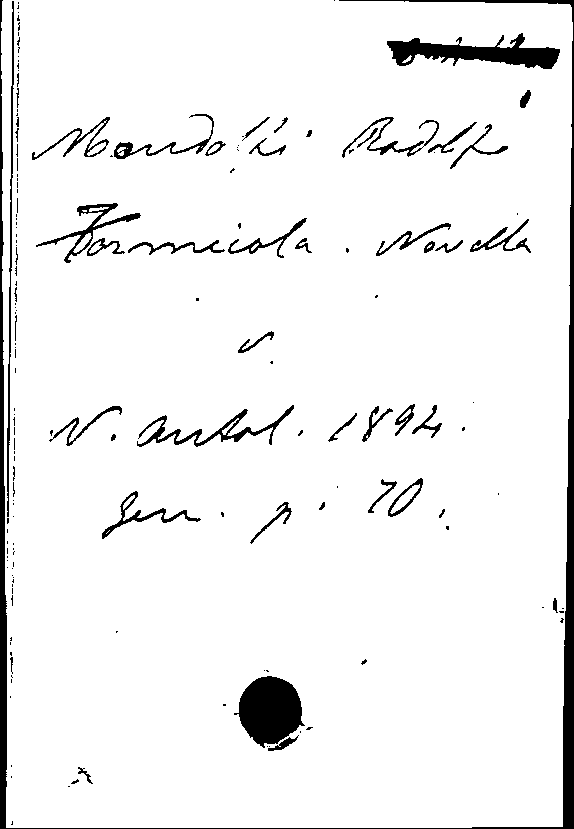 Mondolfi Rodolfo
Formicola. Novella
v.
N. Antol. 1894.
Gen. p. 70.